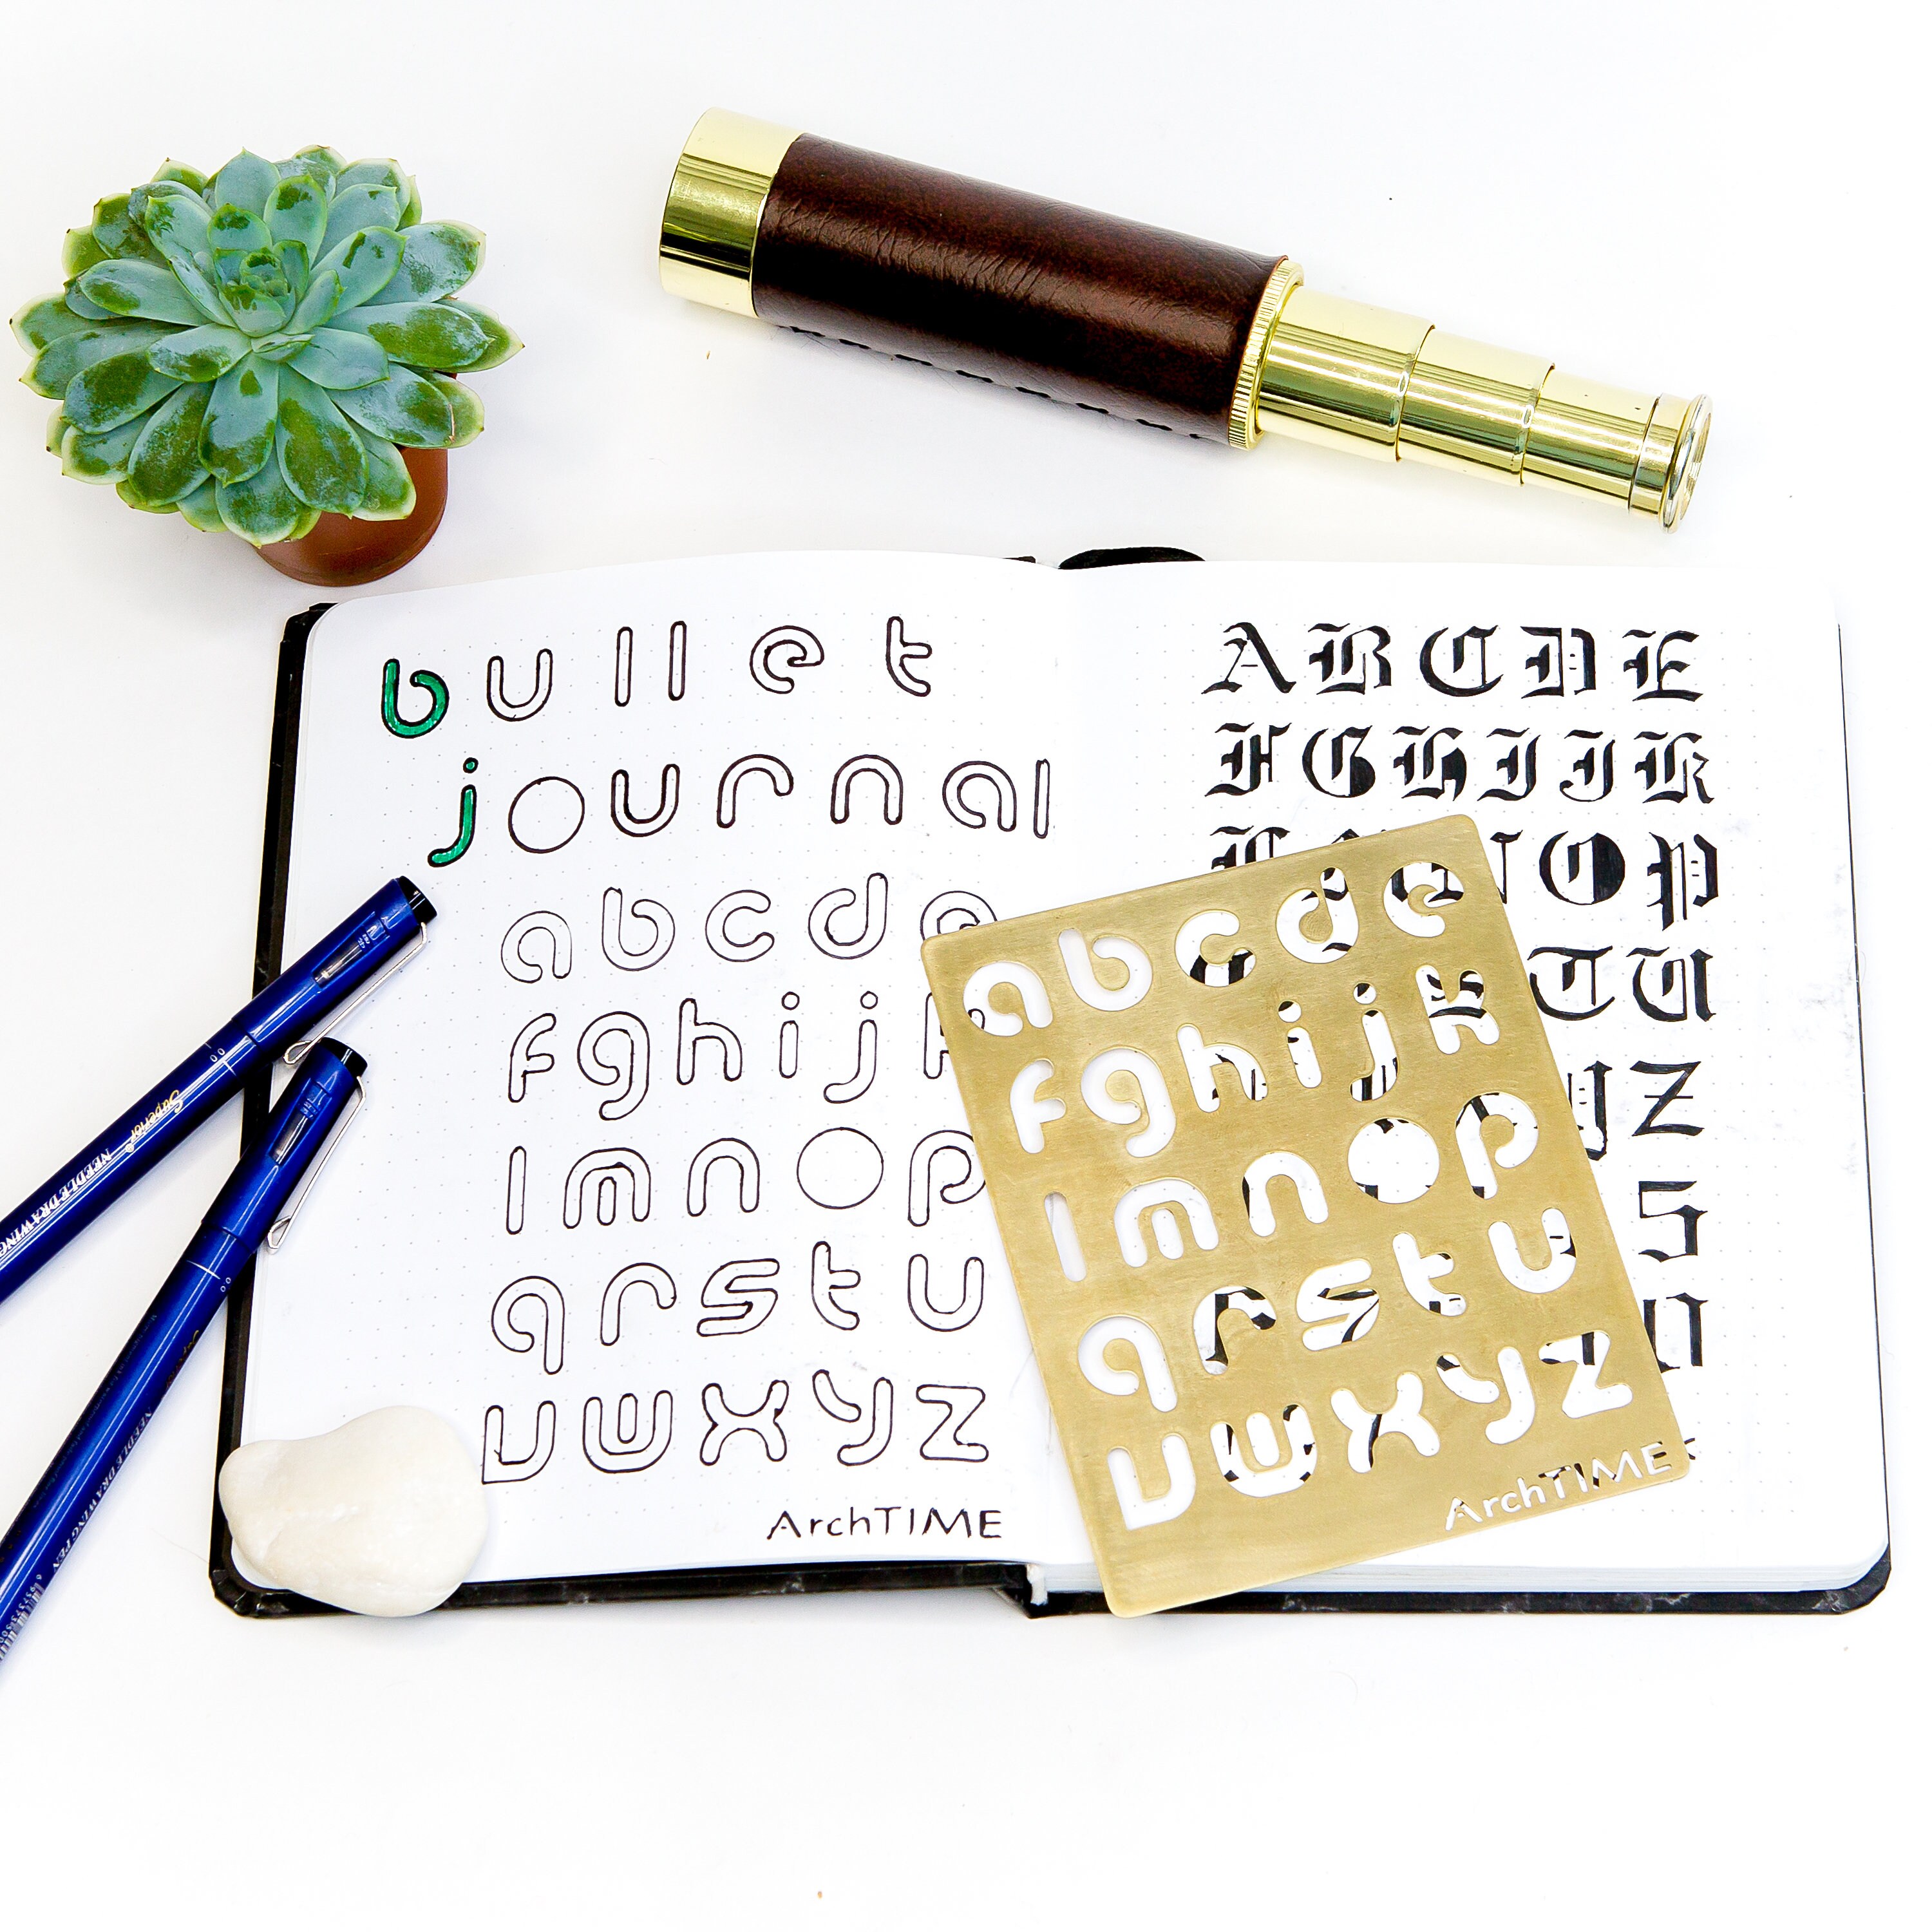 bullet
journal
abcde
fghijk
lmnop
qrstu
vwxyz
ArchTIME
ABCDE
FGHIJK
NOP
TU
YZ
5
0
abcde
fghijk
lmnop
qrstu
vwxyz
ArchTIME
Superior NEEDLE DRAWING
00
NEEDLE DRAWING PEN